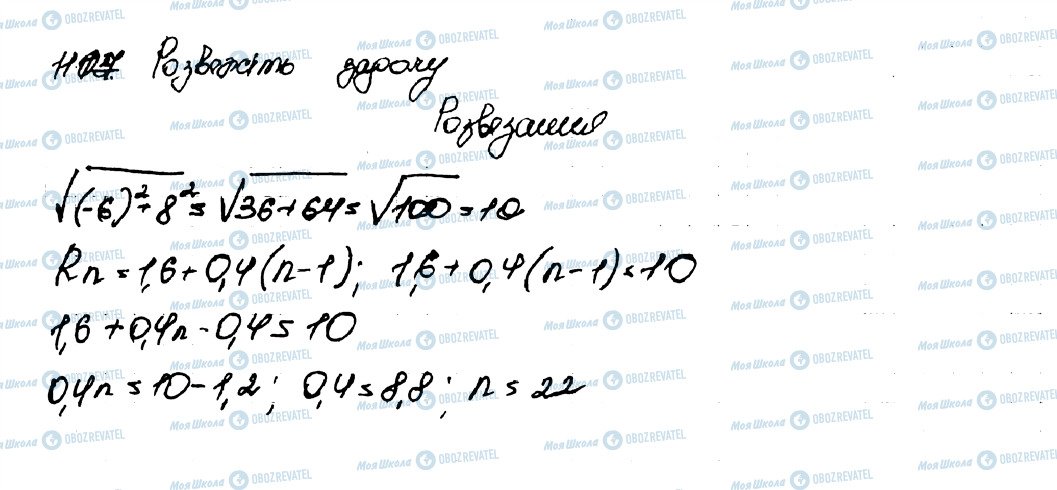 Розвяжіть задачу
Розвязання
√(-6)²+8² = √36+64 = √100 = 10
Rn = 1,6+0,4(n-1); 1,6+0,4(n-1)=10
1,6+0,4n-0,4=10
0,4n=10-1,2; 0,4=8,8; n=22
Моя Школа OBOZREVATEL